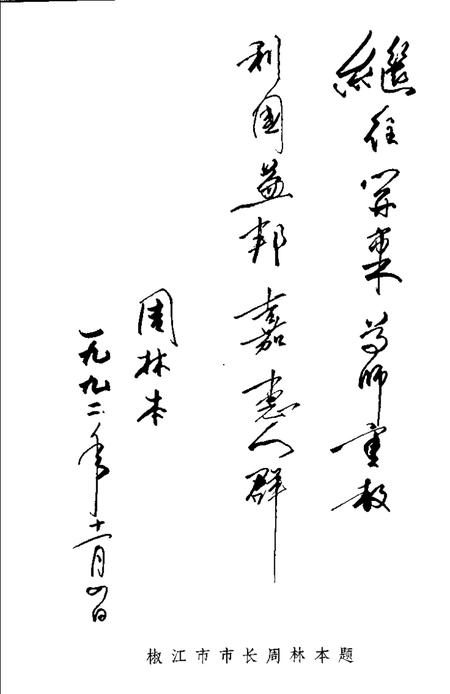 继往开来 尊师重教
利国益邦 嘉惠人群
周林本
一九九二年十一月四日
椒江市市长周林本题